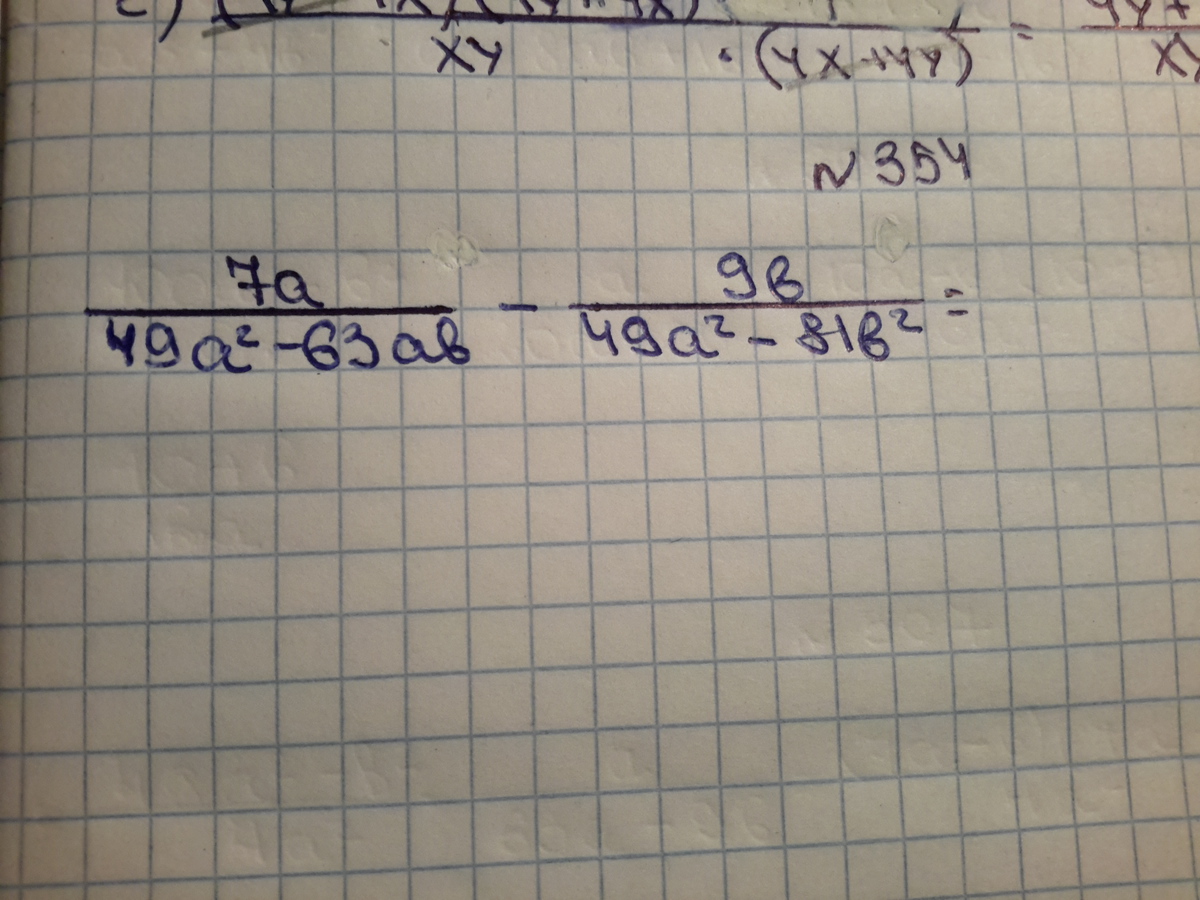 xy · (4x+4y) =
N 354
7a / 49a² - 63ab - 9b / 49a² - 81b² =